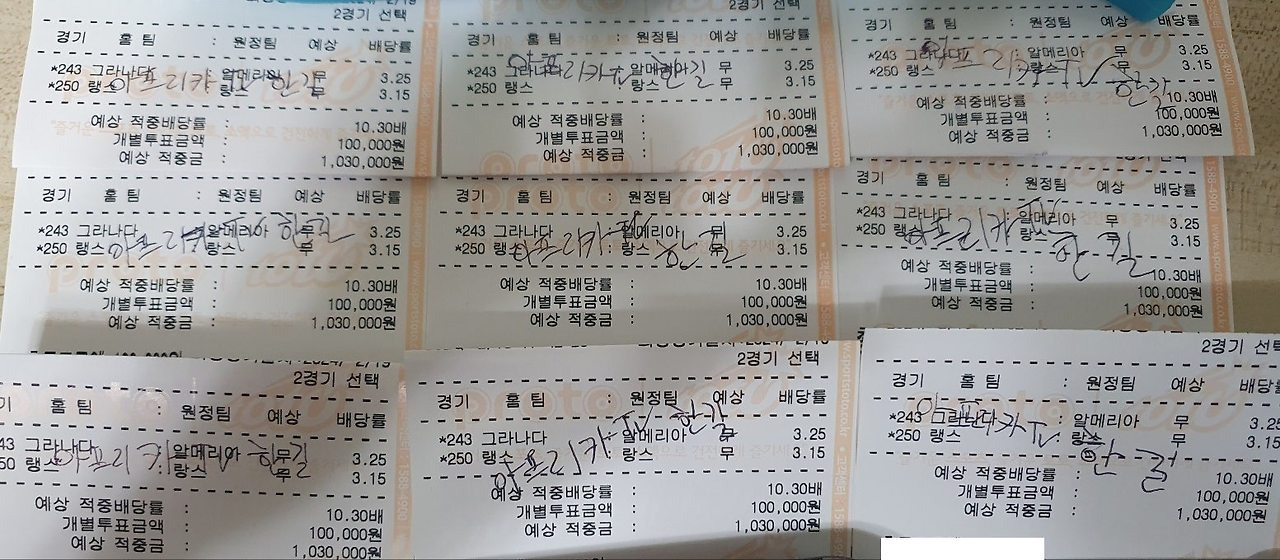 2경기 선택
경기 홈 팀 : 원정팀 예상 배당률
*243 그라나다 : 알메리아 무 3.25
*250 랭스 : 랑스 무 3.15
아프리카TV 한길
예상 적중배당률 : 10.30배
개별투표금액 : 100,000원
예상 적중금 : 1,030,000원
2경기 선택
경기 홈 팀 : 원정팀 예상 배당률
*243 그라나다 : 알메리아 무 3.25
*250 랭스 : 랑스 무 3.15
아프리카TV 한길
예상 적중배당률 : 10.30배
개별투표금액 : 100,000원
예상 적중금 : 1,030,000원
2경기 선택
경기 홈 팀 : 원정팀 예상 배당률
*243 그라나다 : 알메리아 무 3.25
*250 랭스 : 랑스 무 3.15
아프리카TV 한길
예상 적중배당률 : 10.30배
개별투표금액 : 100,000원
예상 적중금 : 1,030,000원
경기 홈 팀 : 원정팀 예상 배당률
*243 그라나다 : 알메리아 무 3.25
*250 랭스 : 랑스 무 3.15
아프리카TV 한길
예상 적중배당률 : 10.30배
개별투표금액 : 100,000원
예상 적중금 : 1,030,000원
경기 홈 팀 : 원정팀 예상 배당률
*243 그라나다 : 알메리아 무 3.25
*250 랭스 : 랑스 무 3.15
아프리카TV 한길
예상 적중배당률 : 10.30배
개별투표금액 : 100,000원
예상 적중금 : 1,030,000원
경기 홈 팀 : 원정팀 예상 배당률
*243 그라나다 : 알메리아 무 3.25
*250 랭스 : 랑스 무 3.15
아프리카TV 한길
예상 적중배당률 : 10.30배
개별투표금액 : 100,000원
예상 적중금 : 1,030,000원
2경기 선택
경기 홈 팀 : 원정팀 예상 배당률
243 그라나다 : 알메리아 무 3.25
*250 랭스 : 랑스 무 3.15
아프리카TV 한길
예상 적중배당률 : 10.30배
개별투표금액 : 100,000원
예상 적중금 : 1,030,000원
2경기 선택
경기 홈 팀 : 원정팀 예상 배당률
*243 그라나다 : 알메리아 무 3.25
*250 랭스 : 랑스 무 3.15
아프리카TV 한길
예상 적중배당률 : 10.30배
개별투표금액 : 100,000원
예상 적중금 : 1,030,000원
2경기 선택
경기 홈 팀 : 원정팀 예상 배당률
*243 그라나다 : 알메리아 무 3.25
*250 랭스 : 랑스 무 3.15
아프리카TV 한길
예상 적중배당률 : 10.30배
개별투표금액 : 100,000원
예상 적중금 : 1,030,000원